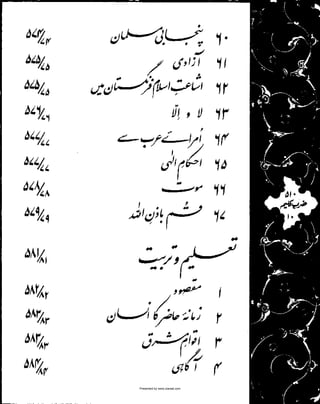 ۶۰ پنجابی مسلمان ۵۷۴/۷۴
۶۱ آزادی ۵۷۵/۷۵
۶۲ اشاعتِ اسلام فرنگستان میں ۵۷۵/۷۵
۶۳ لا و الّا ۵۷۶/۷۶
۶۴ اُمرائے عرب سے ۵۷۷/۷۷
۶۵ احکامِ الٰہی ۵۷۷/۷۷
۶۶ موت ۵۷۸/۷۸
۶۷ قُم باذن اللہ ۵۷۹/۷۹
تعلیم و تربیت ۵۸۱/۸۱
۱ مقصود ۵۸۲/۸۲
۲ زمانۂ حاضر کا انسان ۵۸۳/۸۳
۳ اقوامِ مشرق ۵۸۳/۸۳
۴ آگاہی ۵۸۴/۸۴
۵۱۰
ضربِ کلیم
۱۰
Presented by www.ziaraat.com